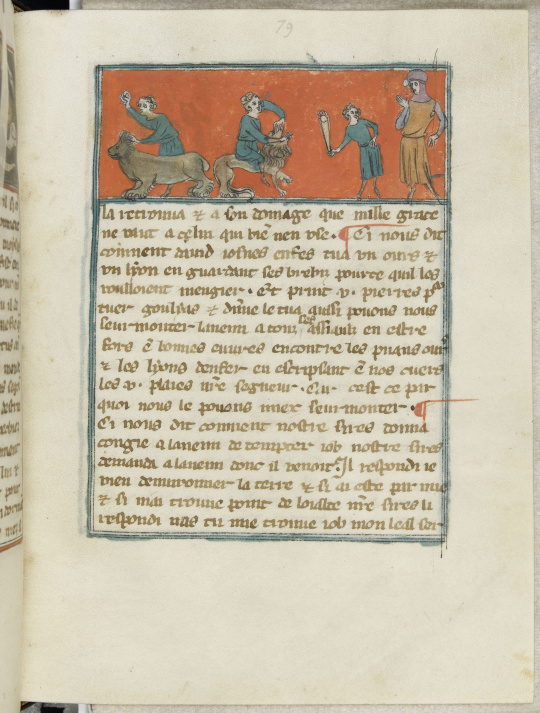 79
la retrovia & a son domage que mille grace
ne vaut a celui qui bien nen use. Ci nous dit
comment david iosnes enfes tua un ours &
un lyon en guardant ses brebis pource quil les
vouloient mengier. Et prinst .v. pierres por
tuer goulias & dune le tua aussi povons nous
seurmonter lanemi a touz ses assaus en estre
fors e bonnes euvres encontre les puans ours
& les lyons denfer en escripsant e nos cuers
les .v. plaies nre segneur. Car cest ce par
quoi nous le povons miex seurmonter.
Ci nous dit comment nostre sires donna
congie a lanemi de tempter iob nostre sires
demanda a lanemi dont il venoit. Il respondi ie
vien denvironner la terre & si ai este par mie
& si nai trouve point de loialte nre sires li
respondi nas tu mie trouve iob mon leal ser